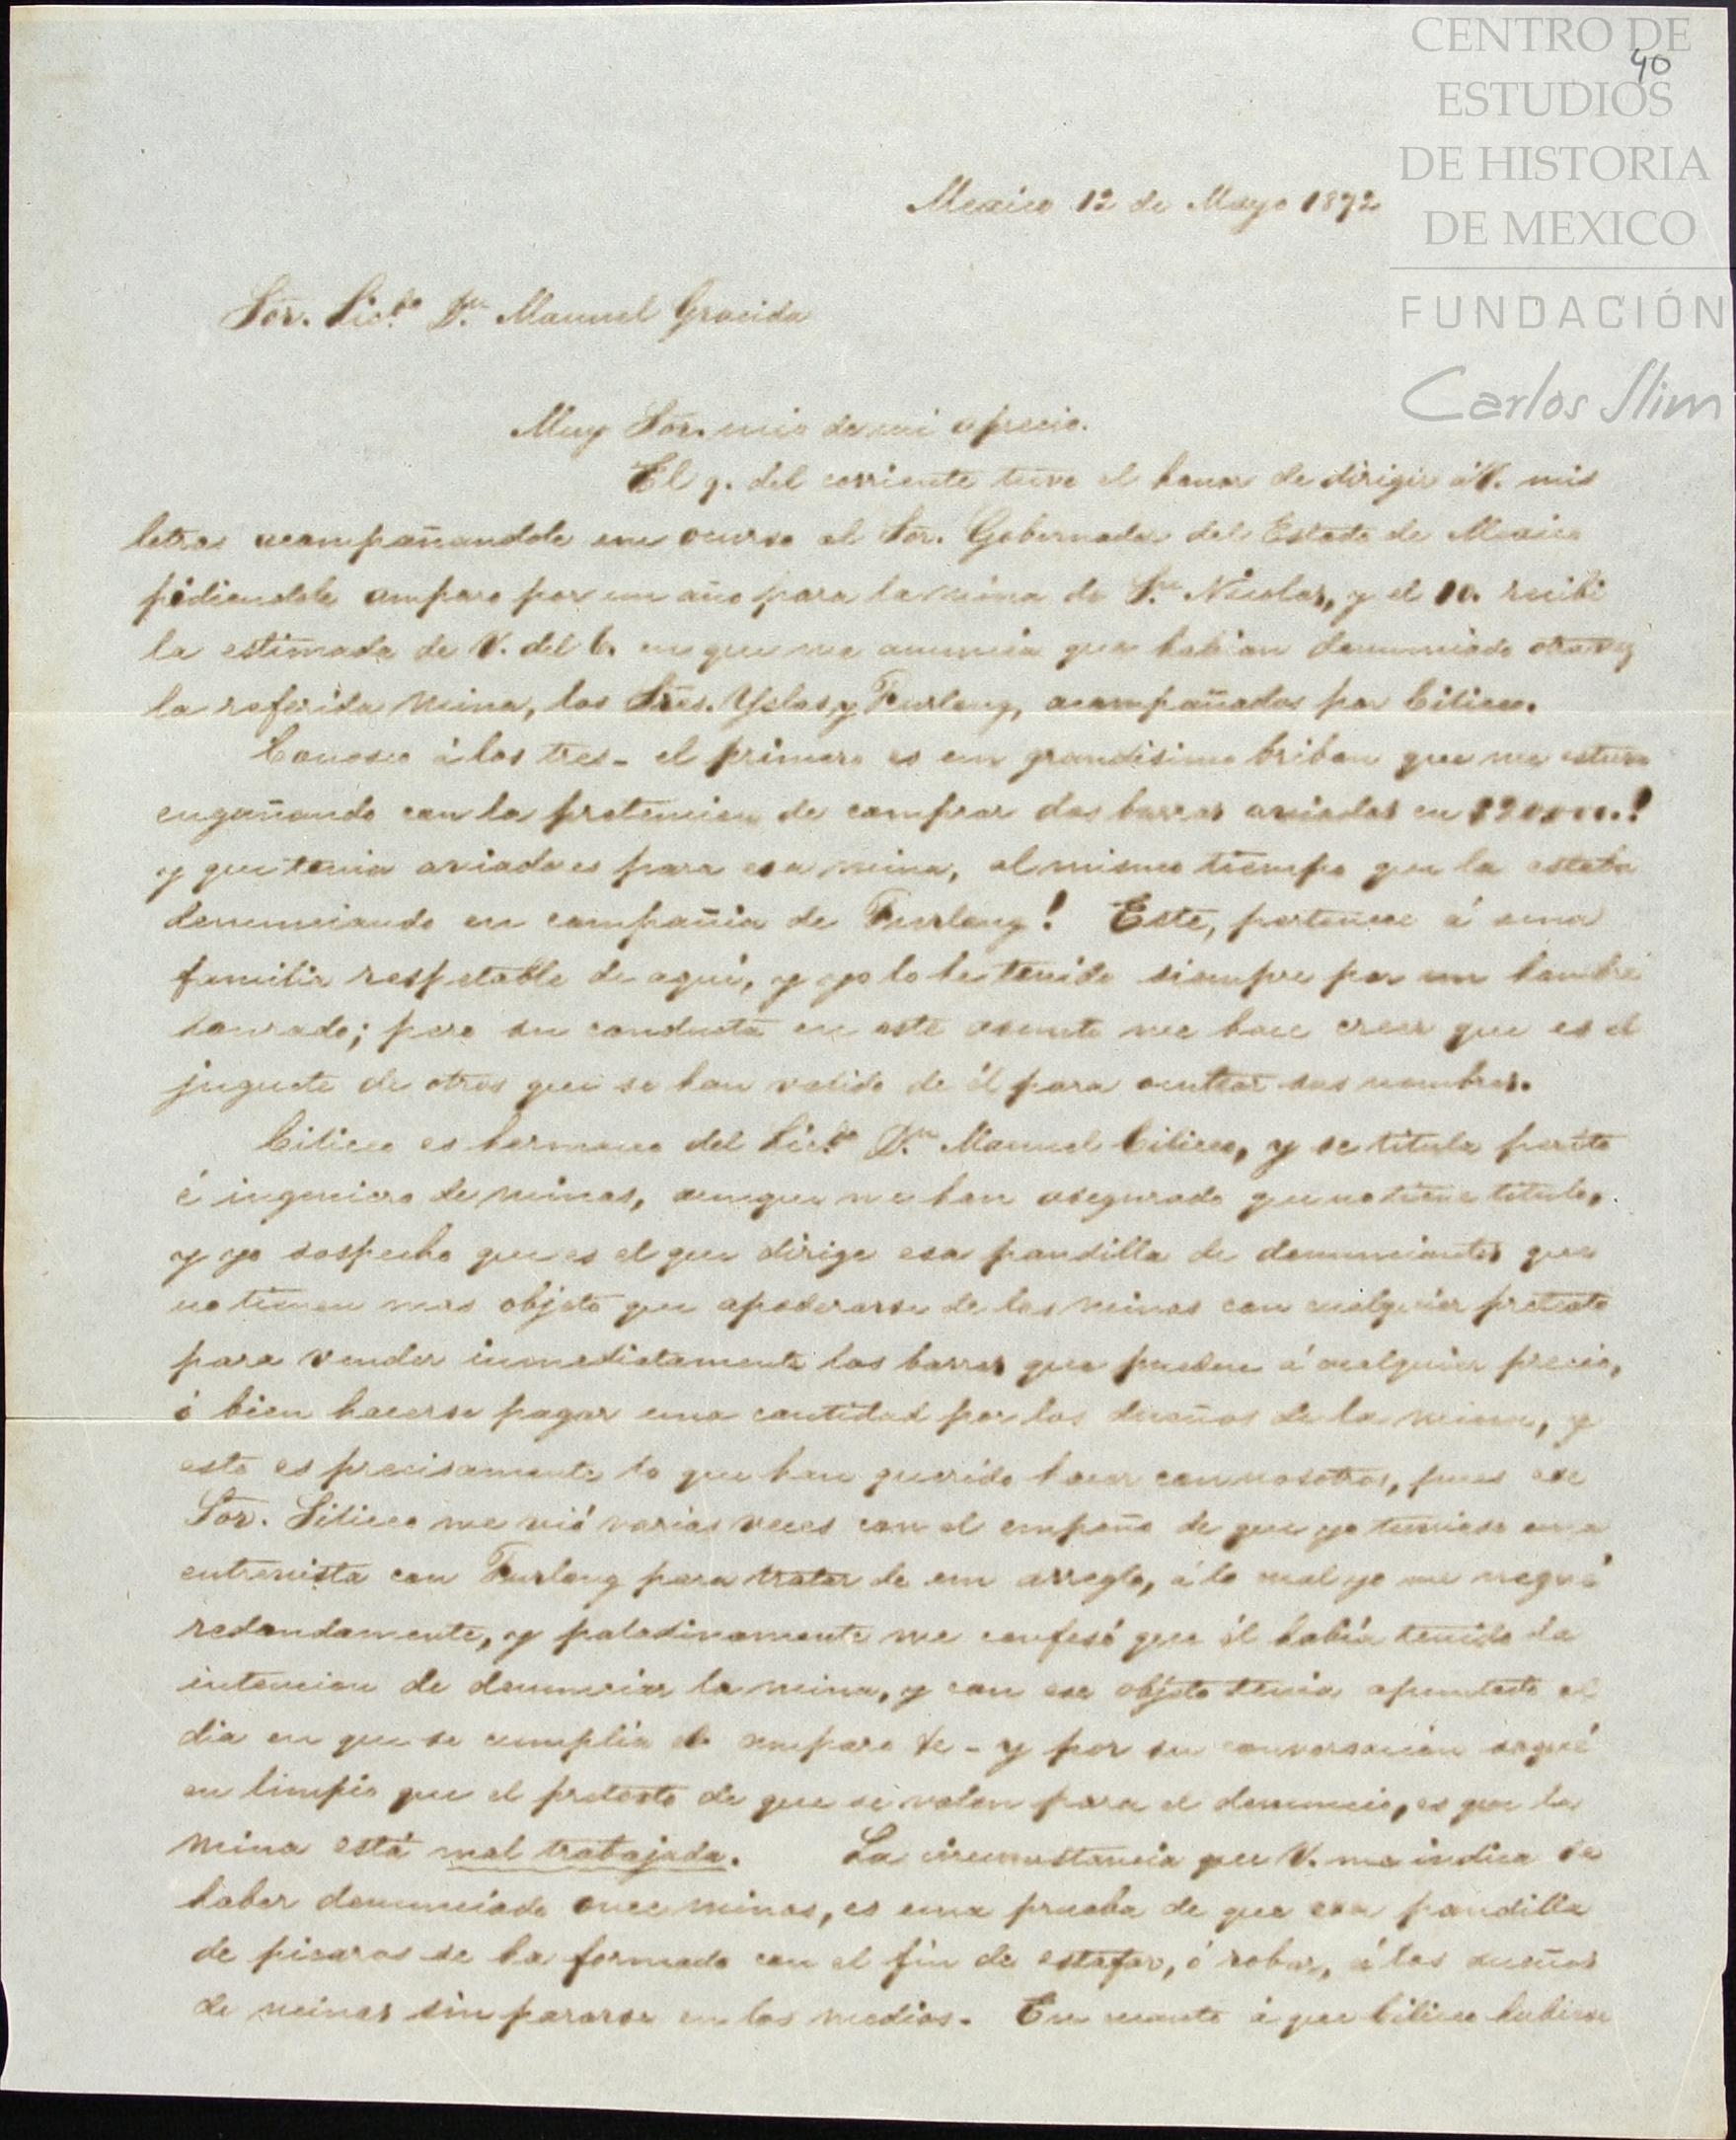 CENTRO DE
ESTUDIOS
DE HISTORIA
DE MEXICO
FUNDACIÓN
Carlos Slim
40
Mexico 12 de Mayo 1872
Sor. Lic.do Dn. Manuel Gracida
Muy Sor. mio de mi aprecio.
El 9. del corriente tuve el honor de dirigir á V. mis
letras acompañandole un ocurso al Sor. Gobernador del Estado de Mexico
pidiendole amparo por un año para la mina de Sn. Nicolas, y el 10. recibi
la estimada de V. del 6. en que me anuncia que habian denunciado otra vez
la referida mina, los Sres. Yslas y Furlong, acompañados por Ciliceo.
Conosco á los tres - el primero es un grandisimo bribon que me estuvo
engañando con la pretencion de comprar dos barras aviadas en $20,000.!
y que tenia aviadores para esa mina, al mismo tiempo que la estaba
denunciando en compañia de Furlong! Este, pertenece á una
familia respetable de aqui, y yo lo he tenido siempre por un hombre
honrado; pero su conducta en este asunto me hace creer que es el
juguete de otros que se han valido de él para ocultar sus nombres.
Ciliceo es hermano del Lic.do Dn. Manuel Ciliceo, y se titula perito
é ingeniero de minas, aunque me han asegurado que no tiene titulo,
y yo sospecho que es el que dirige esa pandilla de denunciantes que
no tienen mas objeto que apoderarse de las minas con cualquier pretesto
para vender inmediatamente las barras que pueden á cualquier precio,
ó bien hacerse pagar una cantidad por los dueños de la mina, y
esto es precisamente lo que han querido hacer con nosotros, pues ese
Sor. Siliceo me vió varias veces con el empeño de que yo tuviese una
entrevista con Furlong para tratar de un arreglo, á lo cual yo me negué
redondamente, y paladinamente me confesó que él habia tenido la
intencion de denunciar la mina, y con ese objeto tenia apuntado el
dia en que se cumplia el amparo &c - y por su conversacion saqué
en limpio que el pretesto de que se valen para el denuncio, es que la
mina está mal trabajada. La circunstancia que V. me indica de
haber denunciado once minas, es una prueba de que esa pandilla
de picaros se ha formado con el fin de estafar, ó robar, á los dueños
de minas sin pararse en los medios. En cuanto á que Ciliceo hubiese